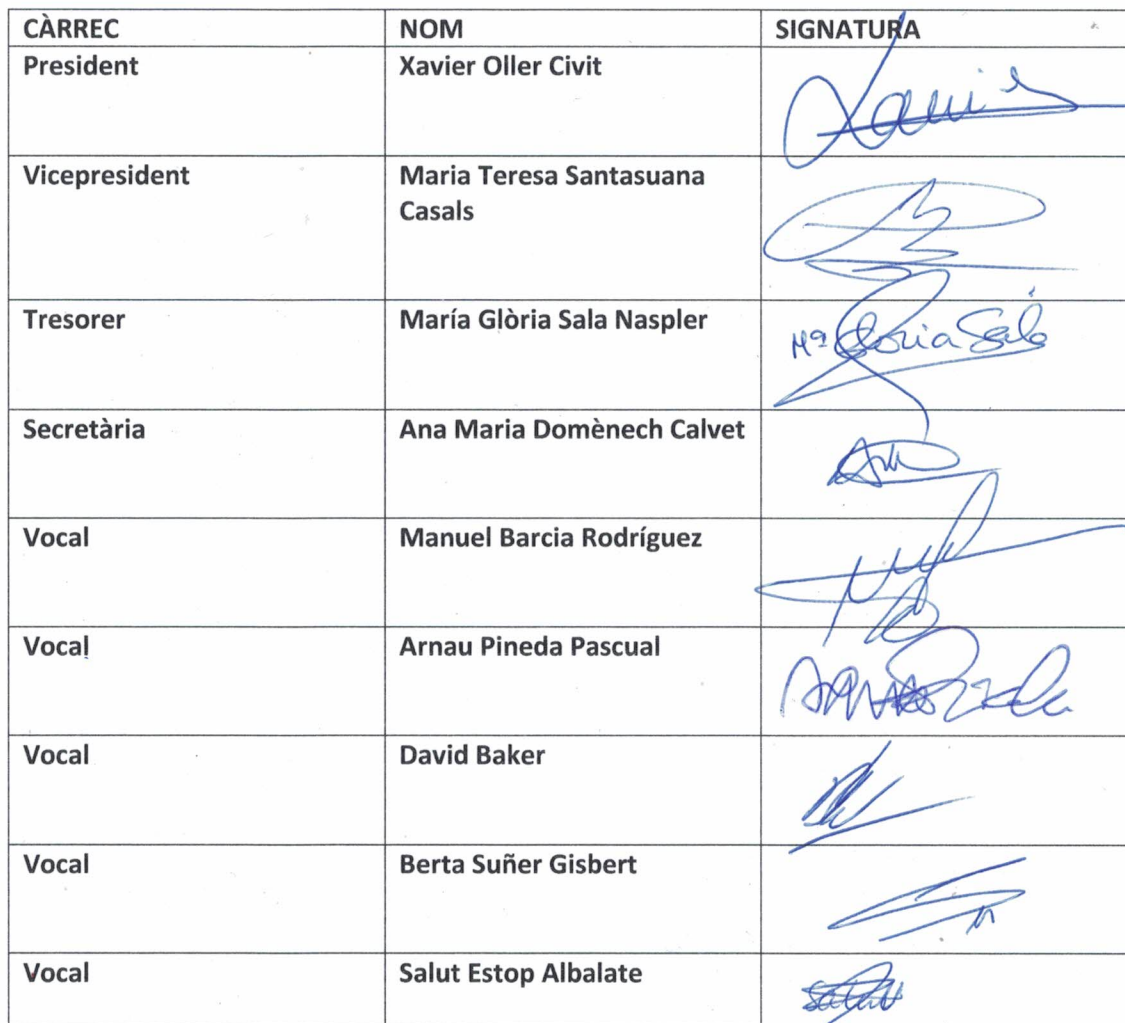 CÀRREC NOM SIGNATURA
President Xavier Oller Civit
Vicepresident Maria Teresa Santasuana
Casals
Tresorer María Glòria Sala Naspler
Mª Gloria Sala
Secretària Ana Maria Domènech Calvet
Vocal Manuel Barcia Rodríguez
Vocal Arnau Pineda Pascual
Vocal David Baker
Vocal Berta Suñer Gisbert
Vocal Salut Estop Albalate